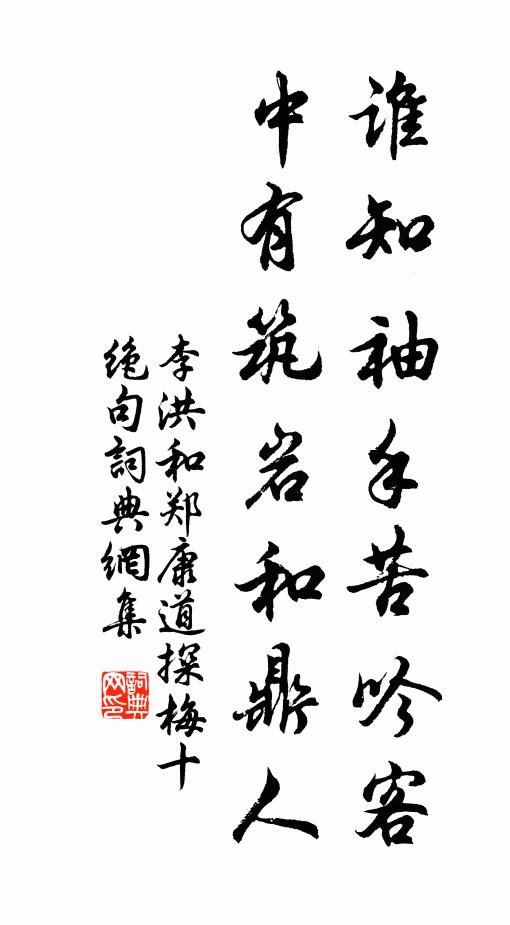 谁知袖手苦吟客
中有筑岩和鼎人
李洪和郑康道探梅十
绝句詞典網集
詞典
网印